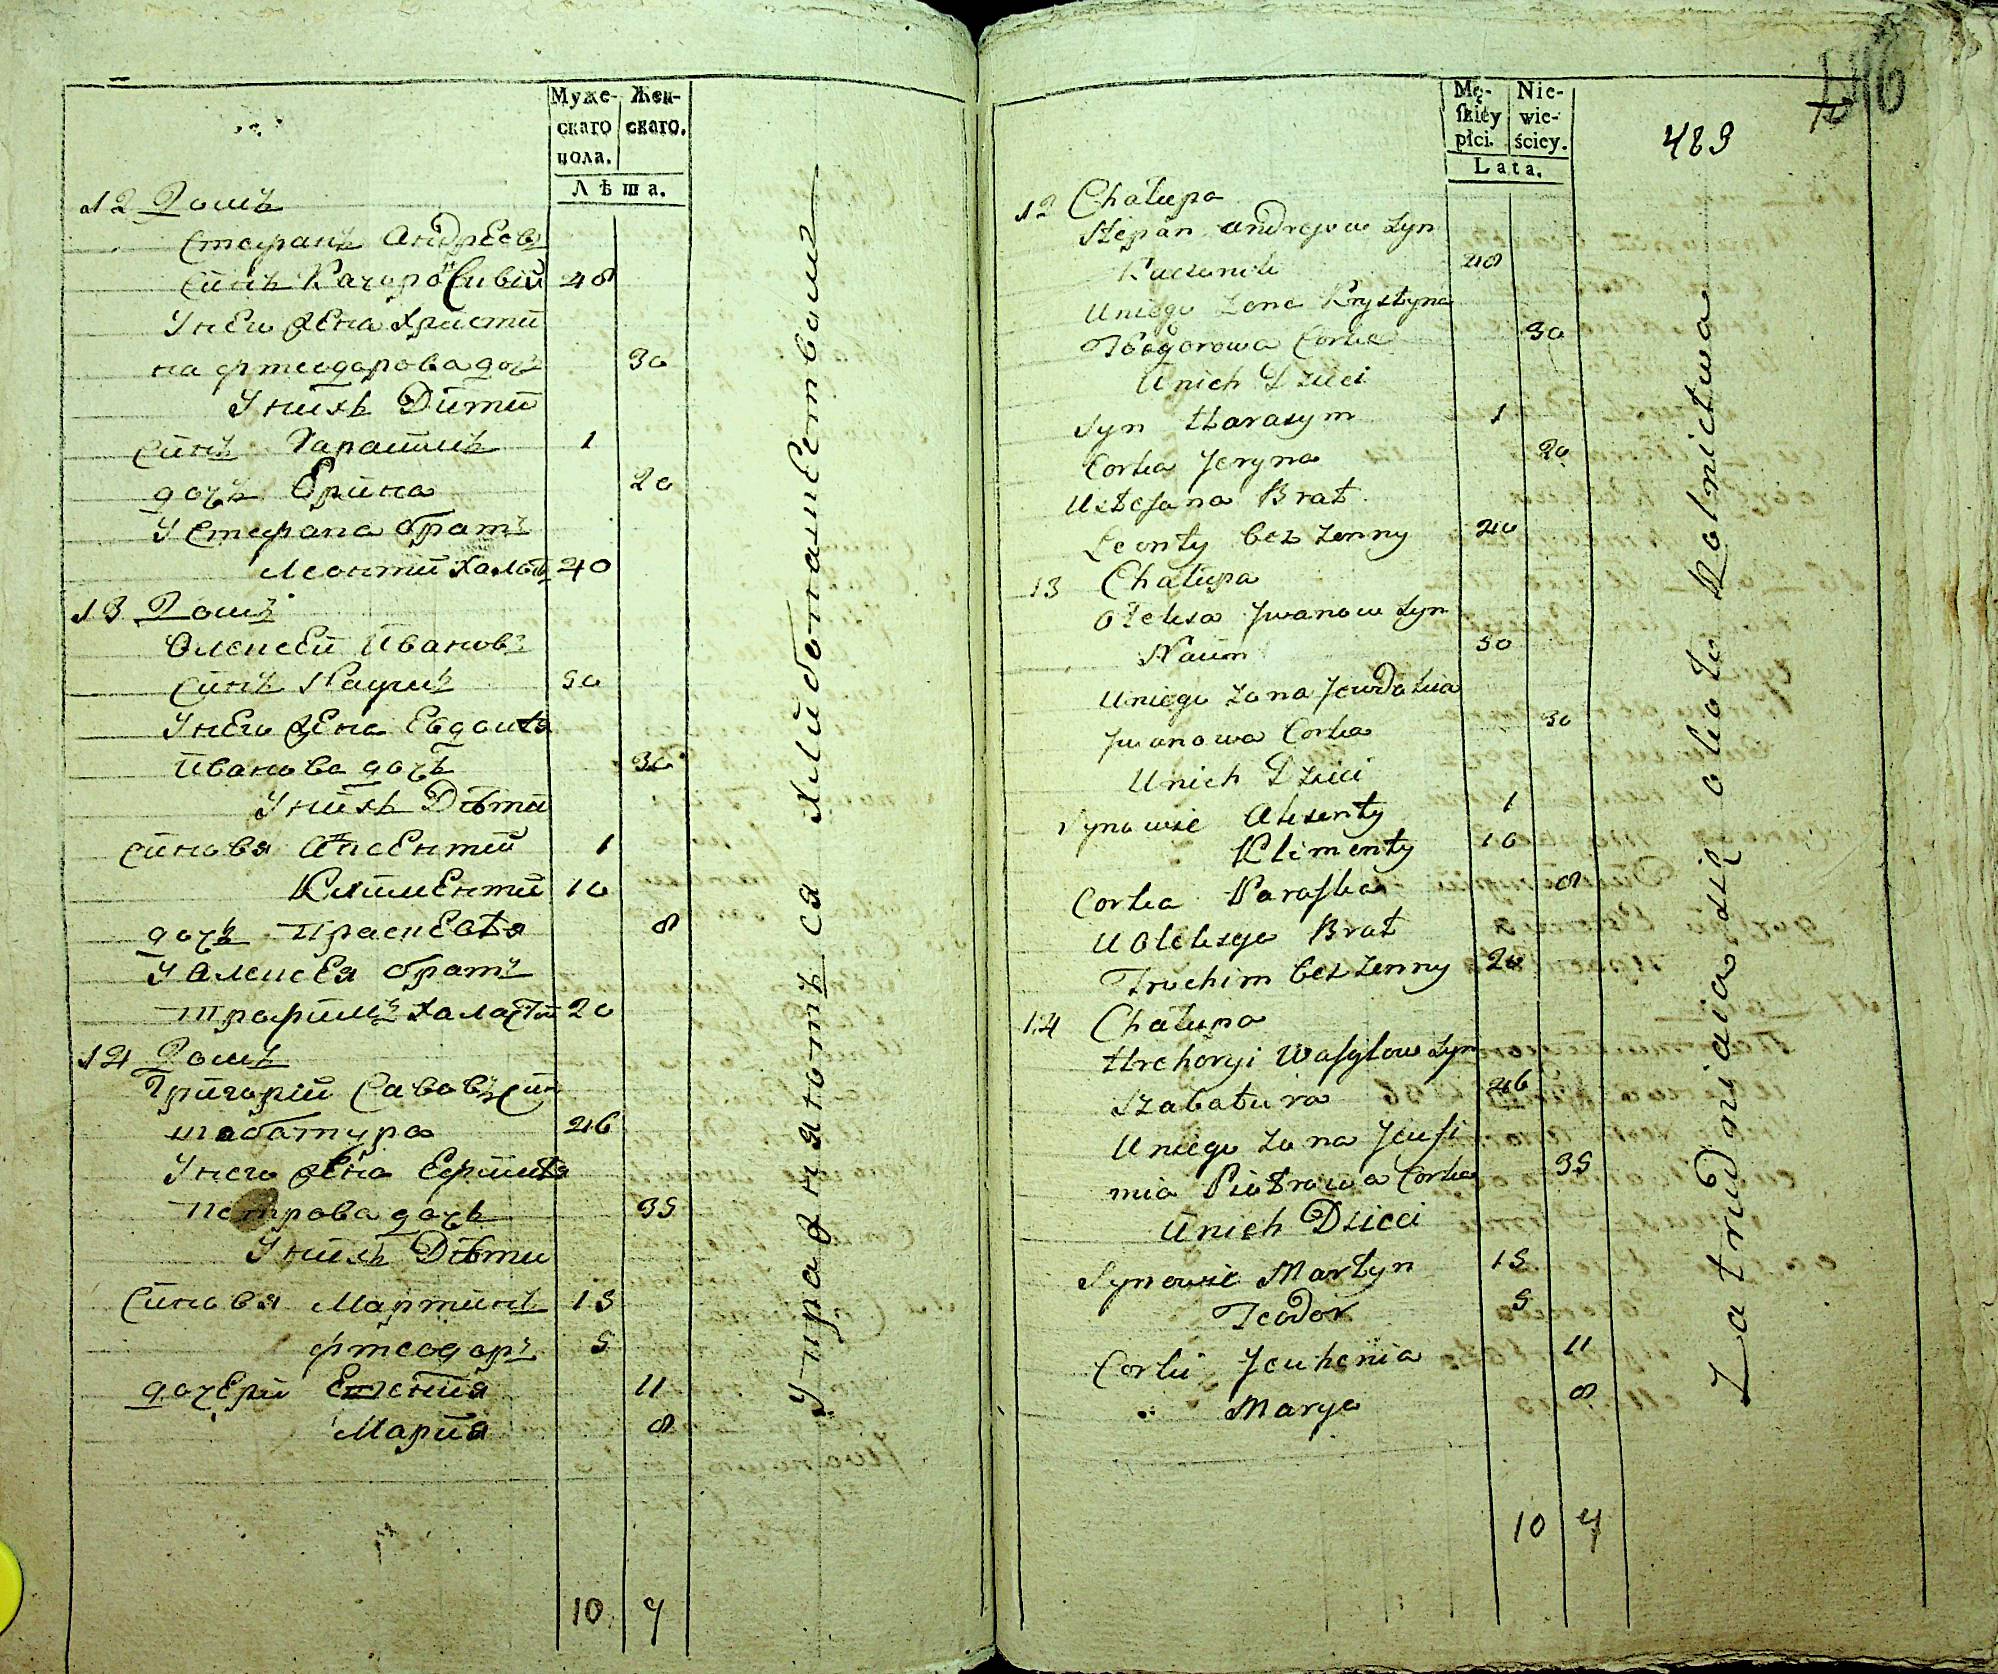 Муже-
скаго
пола.
Жен-
скаго.
Лѣта.
12 Домъ
Стефанъ Андреевъ
синъ Качоро 48
У него жена Христи
на Фтеодорова дочъ 30
У нихъ Дити
синъ Гарасимъ 1
дочъ Ерина 20
У Стефана братъ
Леонтий халост 40
13 Домъ
Олексей Ивановъ
синъ Наумъ 50
У него жена Евдокія
Иванова дочъ 30
У нихъ Дѣти
синовя Аксентий 1
Климентий 10
дочъ Прасковѣя 8
У Алексея братъ
Трофимъ халастий 20
14 Домъ
Григорий Савовъ син
шабатура 46
У него жена Ефимія
Петрова дочъ 35
У нихъ Дѣти
синовя Мартинъ 15
Фтеодоръ 5
дочери Евгения 11
Мария 8
10 4
Упражняютъ ся хлиботашеством
Mę-
skiey
płci.
Nie-
wie-
ściey.
Lata.
483
12 Chałupa
Stepan Andrejow Syn
48
Uniego Zona Krystyna
Teodorowa Corka 30
Unich Dzieci
Syn Harasym 1
Corka Jeryna 20
Ustefana Brat
Leonty bez Zonny 40
13 Chałupa
Oleksa Jwanow Syn
Naum 50
Uniego Zona Jewdokia
Jwanowa Corka 30
Unich Dzieci
Synowie Aksenty 1
Klimenty 10
Corka Paraska 8
U Oleksego Brat
Trochim bez Zenny 20
14 Chałupa
Hrehoryi Wasylow Syn
Szabatura 46
Uniego Zona Jeufi
mia Piotrowa Corka 35
Unich Dzieci
Synowie Martyn 15
Teodor 5
Corki Jeuhenia 11
Marya 8
10 4
Zatrudniaia się około Rolnictwa